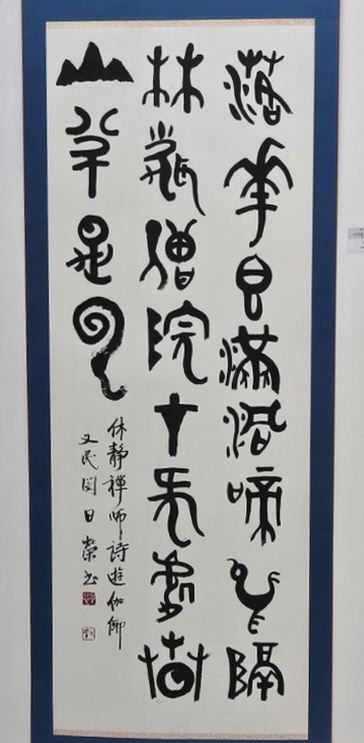 落花香滿洞啼鳥隔
林聞僧院在何處春
山半是雲
休靜禪師詩遊伽倻
又民 日榮書